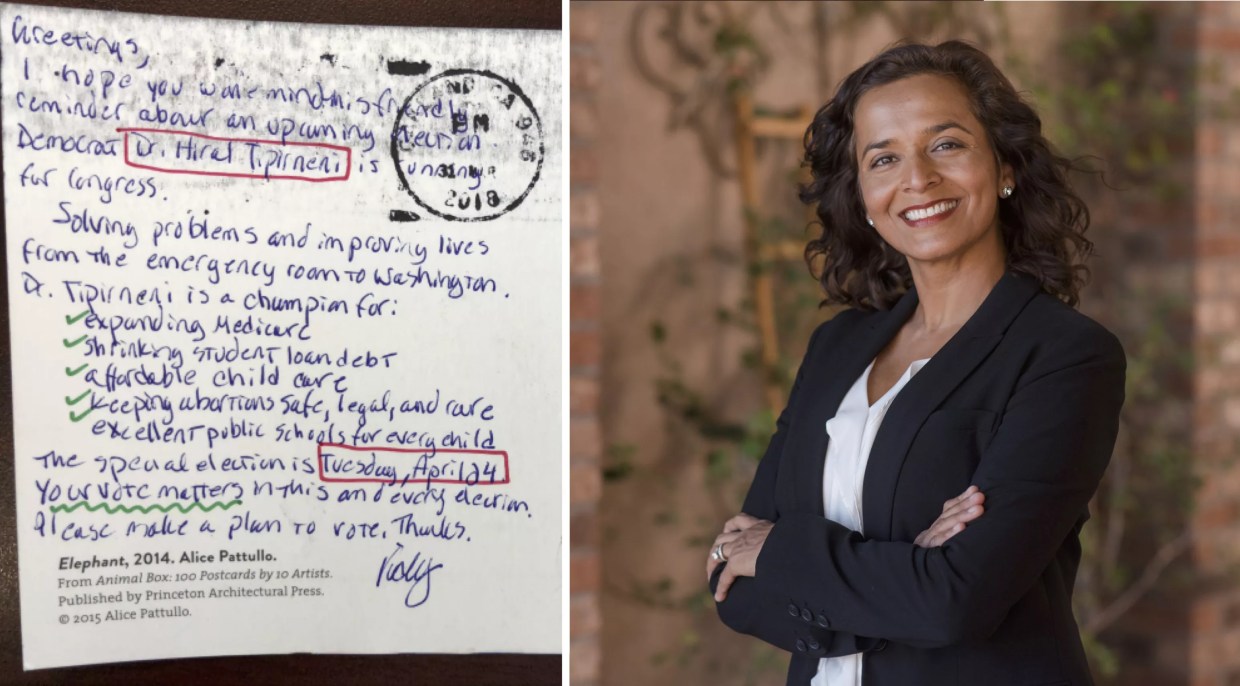 Greetings,
I hope you wont mind this friendly
reminder about an upcoming election.
Democrat Dr. Hiral Tipirneni is running
for Congress.
Solving problems and improving lives
from the emergency room to Washington.
Dr. Tipirneni is a champion for:
expanding Medicare
shrinking student loan debt
affordable child care
keeping abortions safe, legal, and rare
excellent public schools for every child
The special election is Tuesday, April 24.
Your vote matters in this and every election.
Please make a plan to vote. Thanks.
Elephant, 2014. Alice Pattullo.
From Animal Box: 100 Postcards by 10 Artists.
Published by Princeton Architectural Press.
© 2015 Alice Pattullo.
CA
PM
31
2018